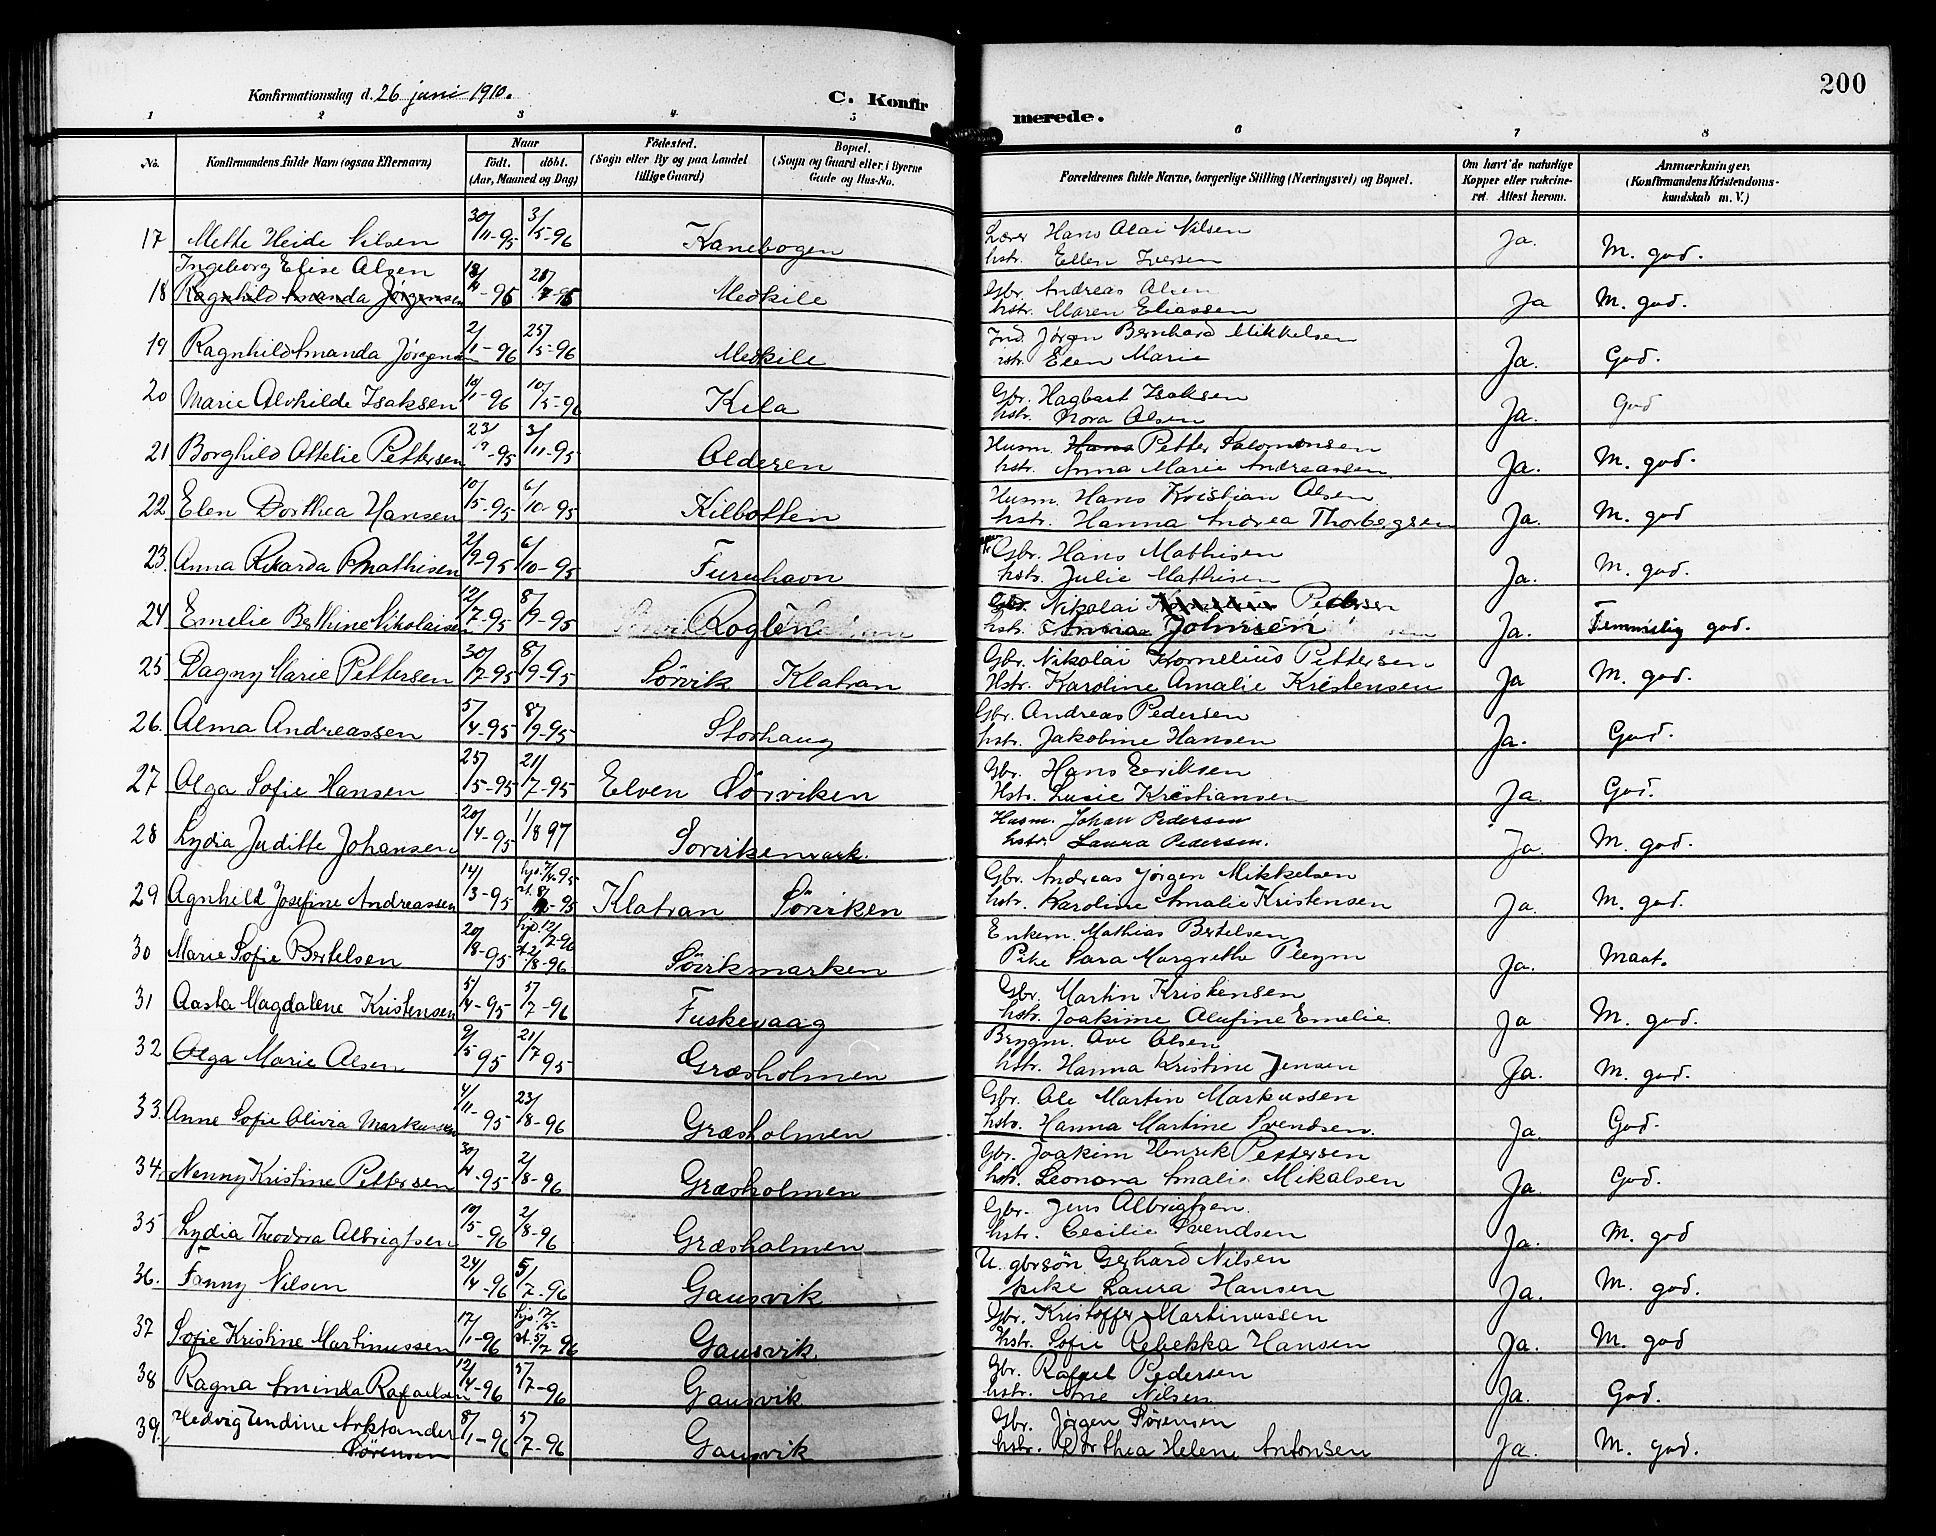 200
Konfirmationsdag d. 26 juni 1910.
C. Konfirmerede.
1 2 3 4 5 6 7 8
No. Konfirmandens fulde Navn (ogsaa Efternavn) Naar født. døbt. (Aar, Maaned og Dag) Fødested. (Sogn eller By og paa Landet tillige Gaard) Bopæl. (Sogn og Gaard eller i Byerne Gade og Hus-No. Forældrenes fulde Navne, borgerlige Stilling (Næringsvei) og Bopæl. Om havt de naturlige Kopper eller vakcineret. Attest herom. Anmærkninger. (Konfirmandens Kristendomskundskab m. V.)
17 Mette Heide Nilsen 30/11-95 3/5-96 Kanebogen Lærer Hans Olai Nilsen Ja. M. god.
hstr. Ellen Iversen
Ingeborg Elise Olsen
18 Ragnhild Amanda Jørgensen Medkile Gbr. Andreas Olsen Ja M. god.
hstr. Maren Eliassen
19 Ragnhild Amanda Jørgens 2/1-96 25/5-96 Medkile Ind. Jørgen Bernhard Mikkelsen Ja. God.
Elen Marie
20 Marie Alvhilde Isaksen 10/1-96 10/5-96 Kila Gbr. Hagbart Isaksen Ja. God
hstr. Nora Olsen
21 Borghild Ottelie Pettersen 23/9-95 3/11-95 Olderen Husm. Hans Petter Salomonsen Ja. M. god.
hstr. Anna Marie Andreassen
22 Elen Dorthea Hansen 10/5-95 6/10-95 Kilbotten Husm. Hans Kristian Olsen Ja. M. god
hstr. Hanna Andrea Thorbergsen
23. Anna Rikarda Mathisen 2/9-95 6/10-95 Furuhavn Gbr. Hans Mathisen Ja. M. god.
hstr. Julie Mathisen
24 Emelie Berthine Nikolaisen 12/7-95 8/9-95 Roglen Gbr. Nikolai Pedersen Ja. Temmelig god.
hstr. Anna Johnsen
25 Dagny Marie Pettersen 30/7-95 8/9-95 Sørvik Klatran Gbr. Nikolai Kornelius Pettersen Ja M. god.
Hstr. Karoline Amalie Kristensen
26. Alma Andreassen 5/4-95 8/9-95 Storhaug Gbr. Andreas Pedersen Ja. God.
hstr. Jakobine Hansen
27 Olga Sofie Hansen 25/5-95 21/7-95 Elven Sørviken Gbr. Hans Eriksen Ja. God.
Hstr. Lusie Kristiansen
28 Lydia Juditte Johansen 20/4-95 1/8 97 Sørvikenmark. Husm. Johan Pedersen Ja. M. god.
hstr. Laura Pedersen.
29 Agnhild Josefine Andreassen 14/3-95 Klatran Sørviken Gbr. Andreas Jørgen Mikkelsen Ja. M. god.
hstr. Karoline Amalie Kristensen
30 Marie Sofie Bertelsen 20/8-95 hjd. 12/7-96 st. 2/8-96 Sørvikmarken Enkem. Mathias Bertelsen Ja. Maat.
Pike Sara Margrethe Pleym
31 Aasta Magdalene Kristensen 5/4-95 5/7-96 Fuskevaag Gbr. Martin Kristensen Ja M. god.
hstr. Joakime Olufine Emelie.
32 Olga Marie Olsen 9/5 95 21/7 95 Græsholmen Brygm. Ove Olsen Ja. M. god.
hstr. Hanna Kristine Jensen
33. Anne Sofie Olivia Markussen 4/11-95 23/8-96 Græsholmen Gbr. Ole Martin Markussen Ja. God.
hstr. Hanna Martine Svendsen.
34. Nenny Kristine Pettersen 30/11-95 2/8-96 Græsholmen Gbr. Joakim Henrik Pettersen Ja. God.
hstr. Leonora Amalie Mikalsen
35 Lydia Theodora Albrigtsen 10/5-96 2/8-96 Græsholmen Gbr. Jens Albrigtsen. Ja. M. god
hstr. Cecilie Svendsen
36. Fanny Nilsen 24/4-96 5/7-96 Gausvik U. gbrsøn Gerhard Nilsen Ja. M. god.
pike Laura Hansen
37 Sofie Kristine Martinussen 17/1-96 hjd. 17/5- st. 5/7-96 Gausvik Gbr. Kristoffer Martinussen Ja. M. god
hstr. Sofie Rebekka Hansen
38 Ragna Aminda Rafaelsen 12/4-96 5/7-96 Gausvik Gbr. Rafael Pedersen Ja. God.
hstr. Ane Nilsen
39. Hedvig Undine Arktander Sørensen 8/1-96 5/7-96 Gausvik Gbr. Jørgen Sørensen Ja. M. god.
hstr. Dorthea Helene Antonsen